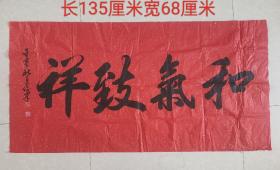 长135厘米宽68厘米
和氣致祥